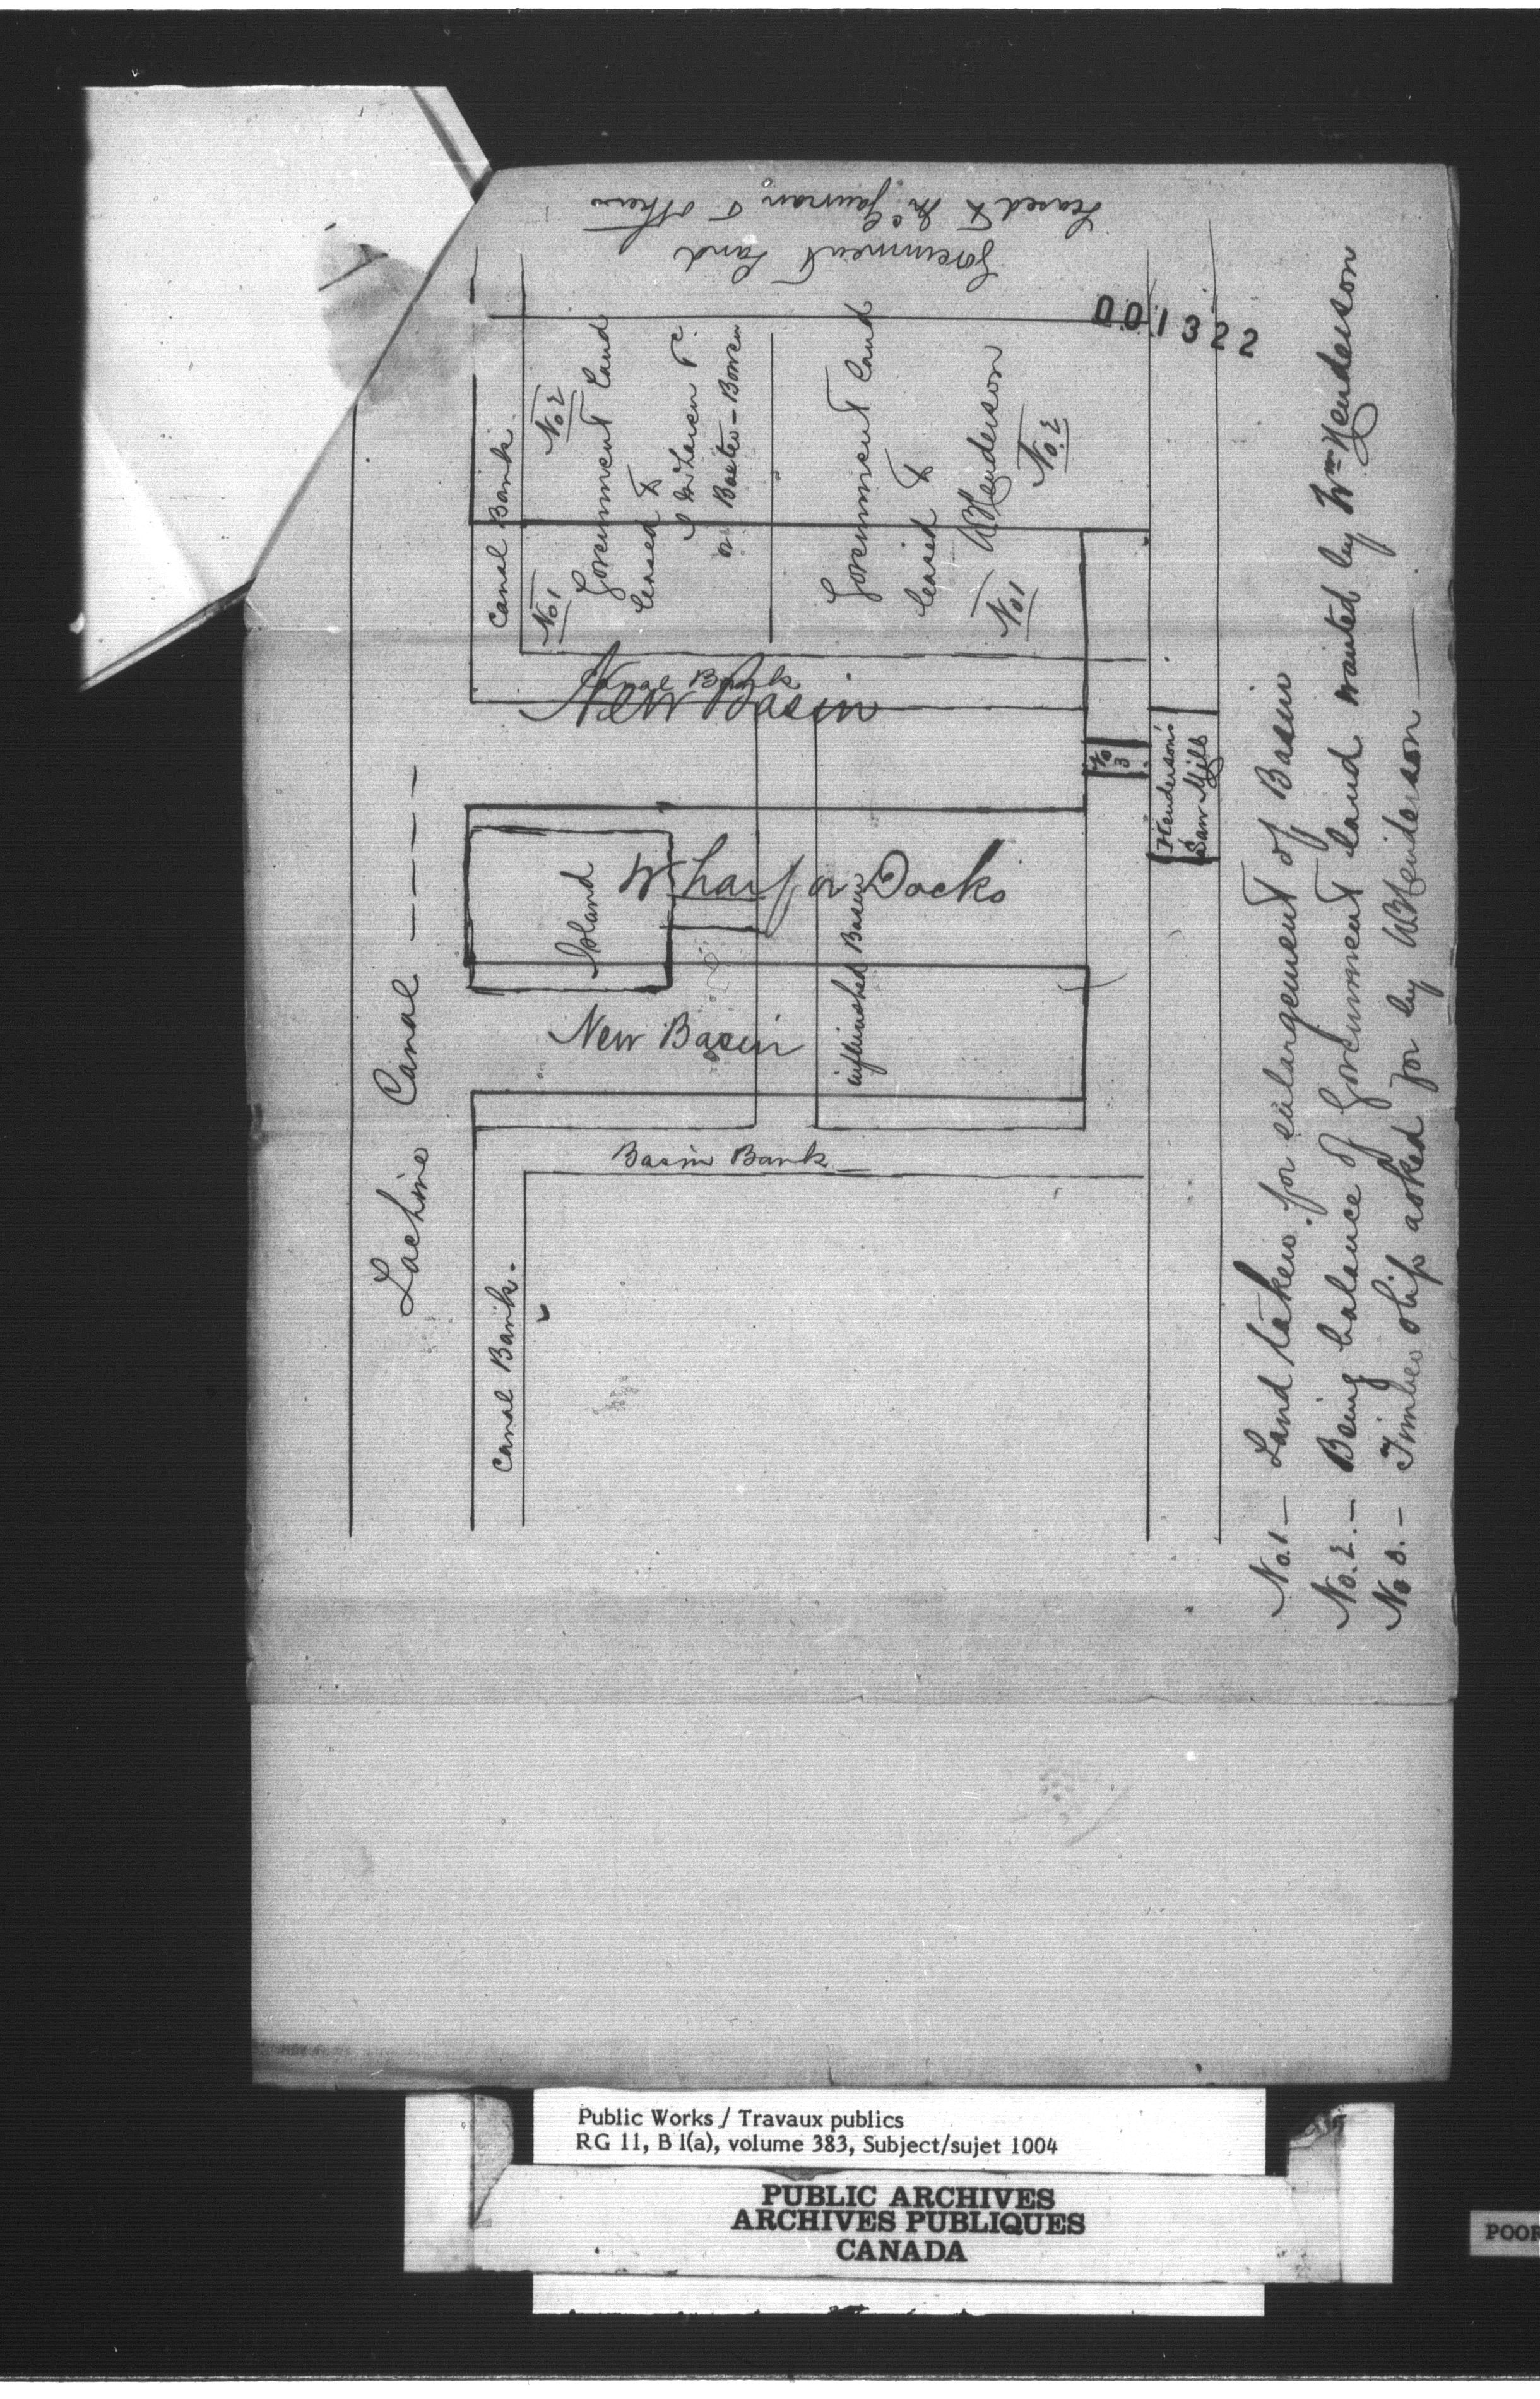 Lachine Canal - - - -
Canal Bank.
Canal Bank.
No 1
No 2
Government Land
leased to
or Baxter - Bowen
Government Land
leased to
W Henderson
No 1
No 2
Government Land
Leased to McGauvran & others
001322
Canal Bank
New Basin
Island
Wharf or Docks
unfinished Basin
New Basin
Basin Bank
No 3
Henderson's
Saw Mills
No. 1 - Land taken for enlargement of Basin
No. 2. - Being balance of Government land wanted by Wm Henderson
No 3. - Timber slip asked for by W Henderson
Public Works / Travaux publics
RG 11, B 1(a), volume 383, Subject/sujet 1004
PUBLIC ARCHIVES
ARCHIVES PUBLIQUES
CANADA
POOR